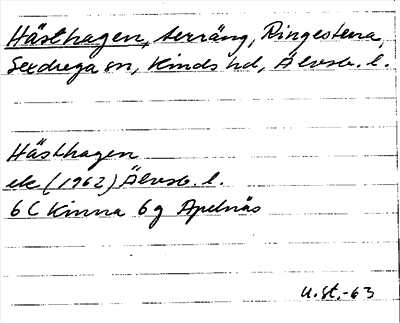 Hästhagen, terräng, Ringestena,
Sexdrega sn, Kinds hd, Älvsb. l.
Hästhagen
ek (1962) Älvsb. l.
6 C Kinna 6 g Apelnäs
U.st.-63